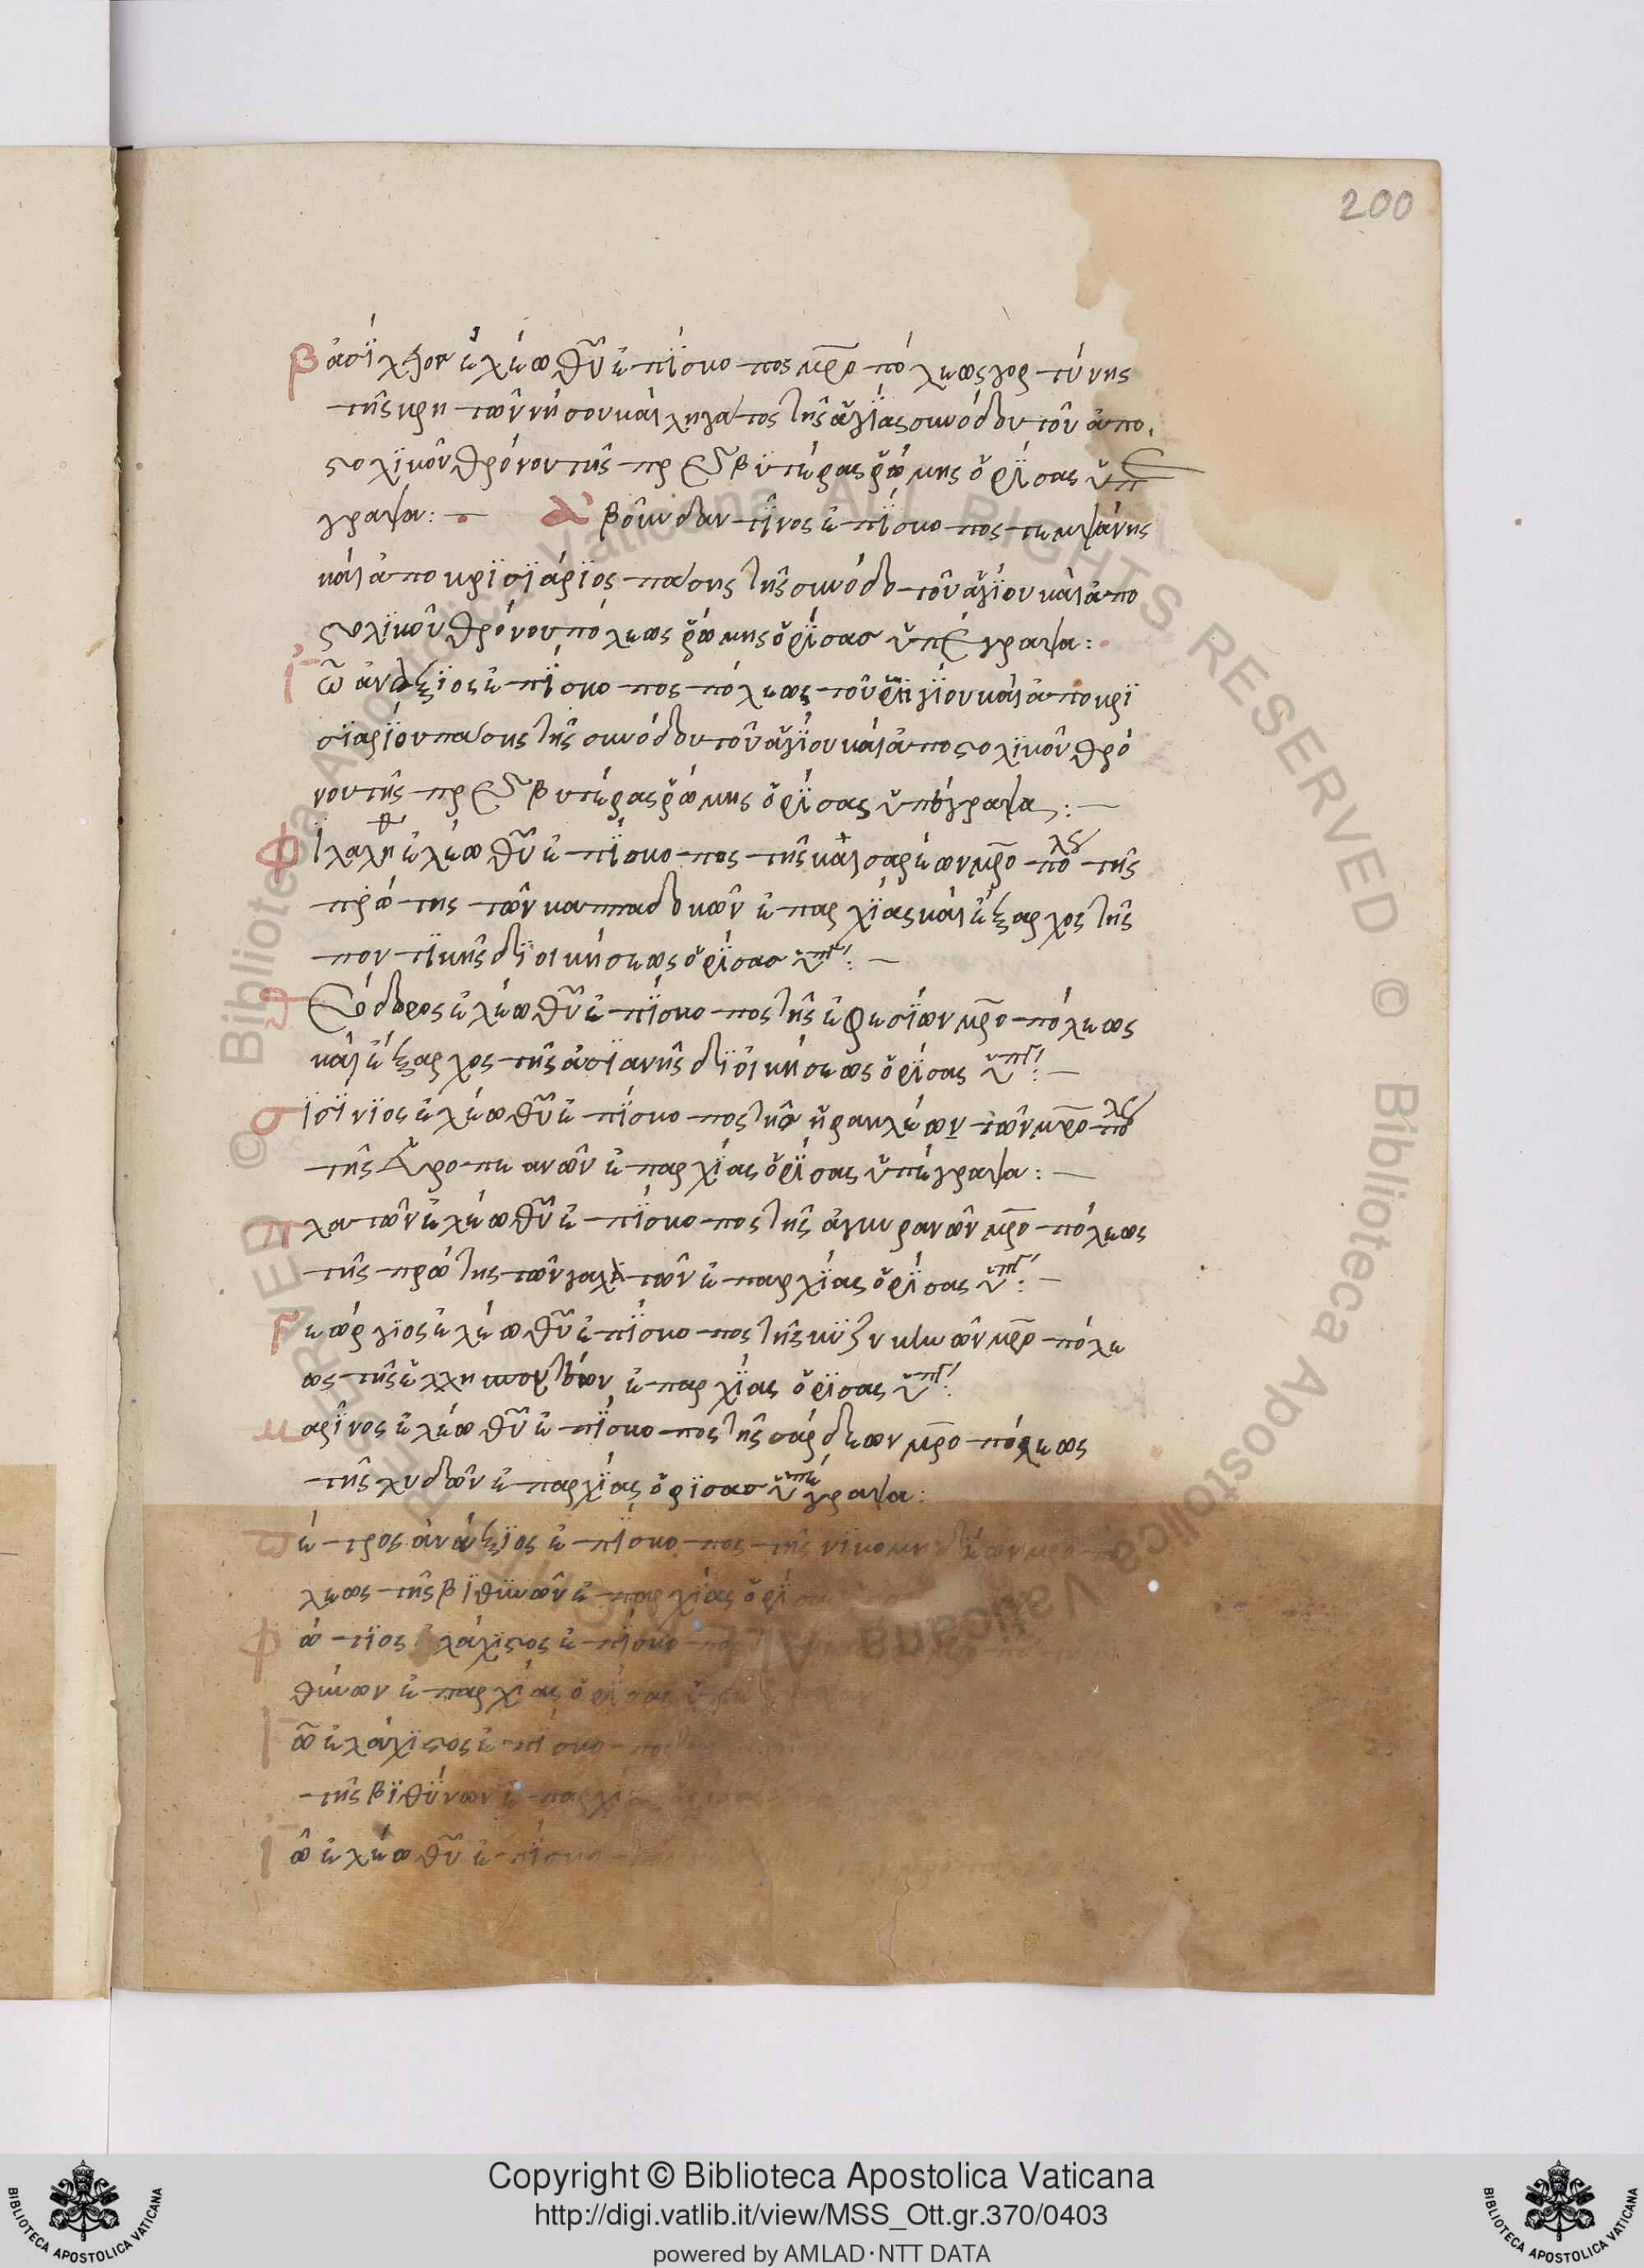 200
βασίλειος ἐλέω θῦ ἐπίσκοπος μρο πόλεως γορτύνης
τῆς κρητῶν νήσου καὶ ληγάτος τῆς ἁγίας συνόδου τοῦ ἀπο
στολικοῦ θρόνου τῆς πρεσβυτέρας ῥώμης ὁρίσας ὑπέ
γραψα: ἀβουνδαντῖνος ἐπίσκοπος τεμψάνης
καὶ ἀποκρισιάριος πάσης τῆς συνόδου τοῦ ἁγίου καὶ ἀπο
στολικοῦ θρόνου πόλεως ῥώμης ὁρίσας ὑπέγραψα:
ἰῶ ἀνάξιος ἐπίσκοπος πόλεως τοῦ ῥηγίου καὶ ἀποκρι
σιαρίου πάσης τῆς συνόδου τοῦ ἁγίου καὶ ἀποστολικοῦ θρό
νου τῆς πρεσβυτέρας ῥώμης ὁρίσας ὑπέγραψα:
φιλαλήθ ἐλέω θῦ ἐπίσκοπος τῆς καισαρέων μρο πόλε τῆς
πρώτης τῶν καππαδοκῶν ἐπαρχίας καὶ ἔξαρχος τῆς
ποντικῆς διοικήσεως ὁρίσας ὑπγ:
θεόδωρος ἐλέω θῦ ἐπίσκοπος τῆς ἐφεσίων μρο πόλεως
καὶ ἔξαρχος τῆς ἀσιανῆς διοικήσεως ὁρίσας ὑπγ:
σισίνιος ἐλέω θῦ ἐπίσκοπος τῆς ἡρακλέων τῶν μρο πόλε
τῆς εὐροπεανῶν ἐπαρχίας ὁρίσας ὑπέγραψα:
πλάτων ἐλέω θῦ ἐπίσκοπος τῆς ἀγκυρανῶν μρο πόλεως
τῆς πρώτης τῶν γαλατῶν ἐπαρχίας ὁρίσας ὑπγ:
γεώργιος ἐλέω θῦ ἐπίσκοπος τῆς κυζικηνῶν μρο πόλε
ως τῆς ἑλλησποντίων ἐπαρχίας ὁρίσας ὑπγ:
μαρῖνος ἐλέω θῦ ἐπίσκοπος τῆς σάρδεων μρο πόλεως
τῆς λυδῶν ἐπαρχίας ὁρίσας ὑπέγραψα:
πέτρος ἀνάξιος ἐπίσκοπος τῆς νικομηδέων μρο πό
λεως τῆς βιθυνῶν ἐπαρχίας ὁρίσας
φώτιος ἐλάχιστος ἐπίσκοπος
θυνῶν ἐπαρχίας ὁρίσας
ἰῶ ἐλάχιστος ἐπίσκοπος
τῆς βιθυνῶν ἐπαρχίας
ἰῶ ἐλέω θῦ ἐπίσκοπος
© Biblioteca Apostolica Vaticana ALL RIGHTS RESERVED © Biblioteca Apostolica Vaticana ALL RIGHTS RESERVED
Copyright © Biblioteca Apostolica Vaticana
http://digi.vatlib.it/view/MSS_Ott.gr.370/0403
powered by AMLAD·NTT DATA
BIBLIOTECA APOSTOLICA VATICANA
BIBLIOTECA APOSTOLICA VATICANA